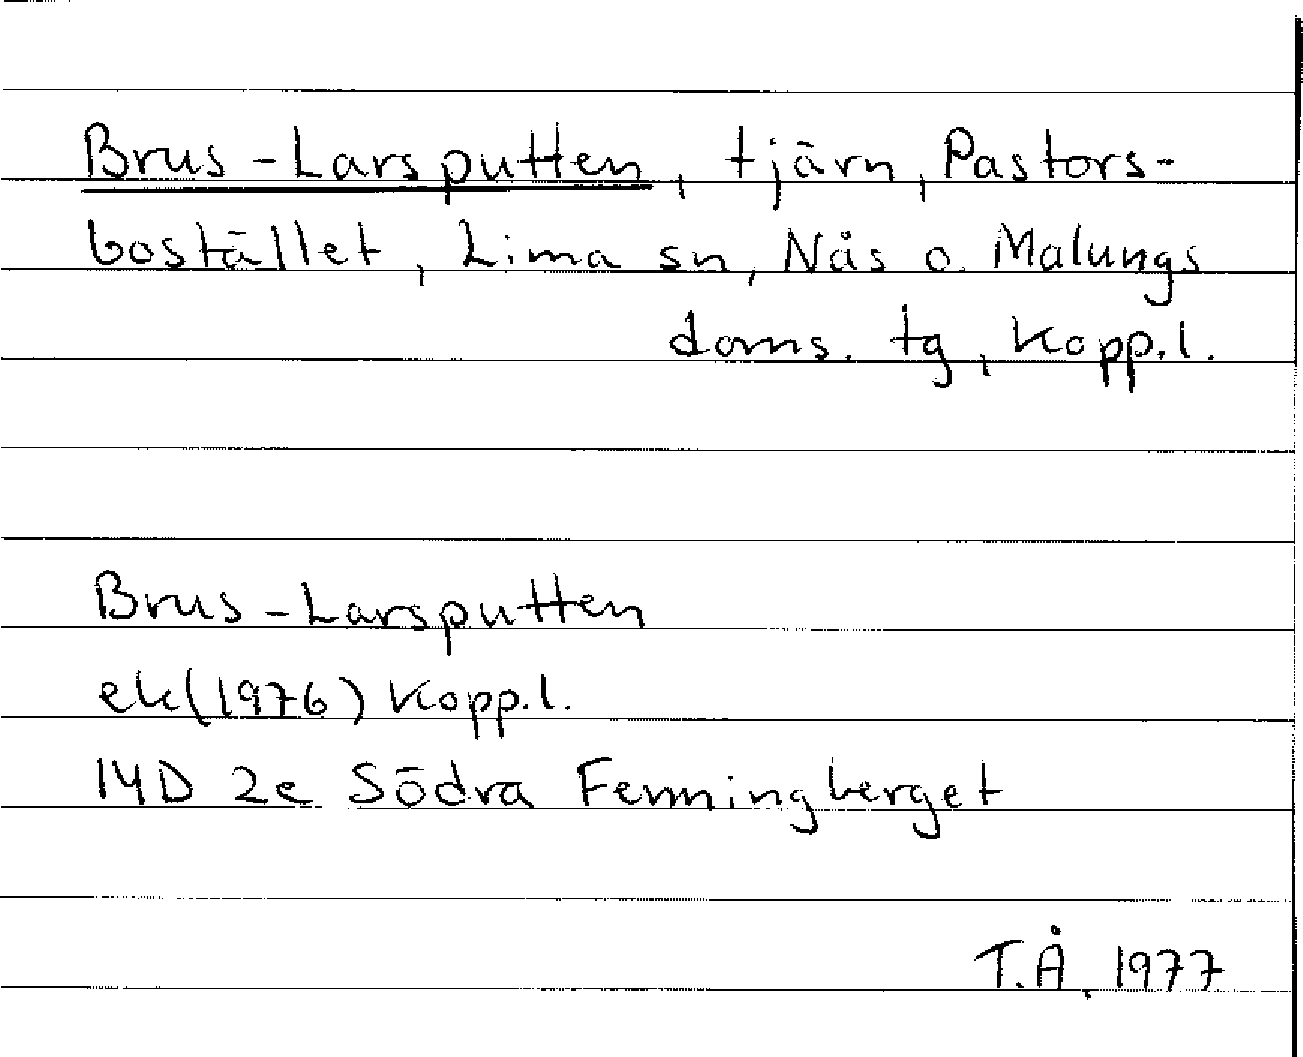 Brus-Larsputten, tjärn, Pastors-
bostället, Lima sn, Nås o. Malungs
doms. tg, Kopp.l.
Brus-Larsputten
ek(1976) Kopp.l.
14D 2e Södra Fenningberget
T.Å. 1977